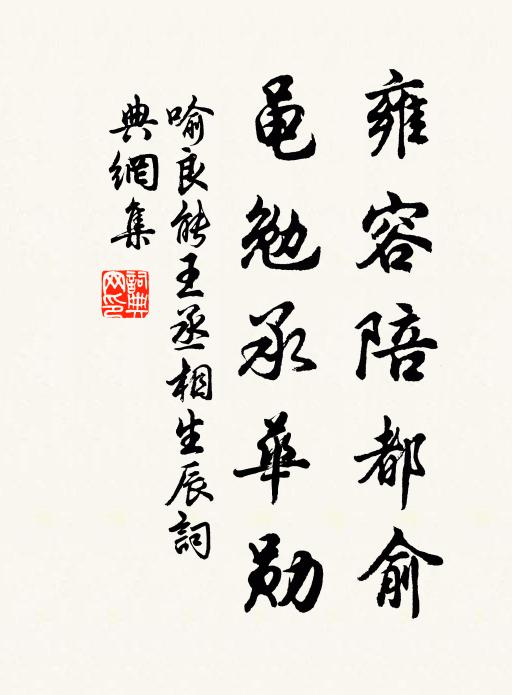 雍容陪都俞
黽勉承華勛
喻良能王丞相生辰詞
典網集
詞典网印